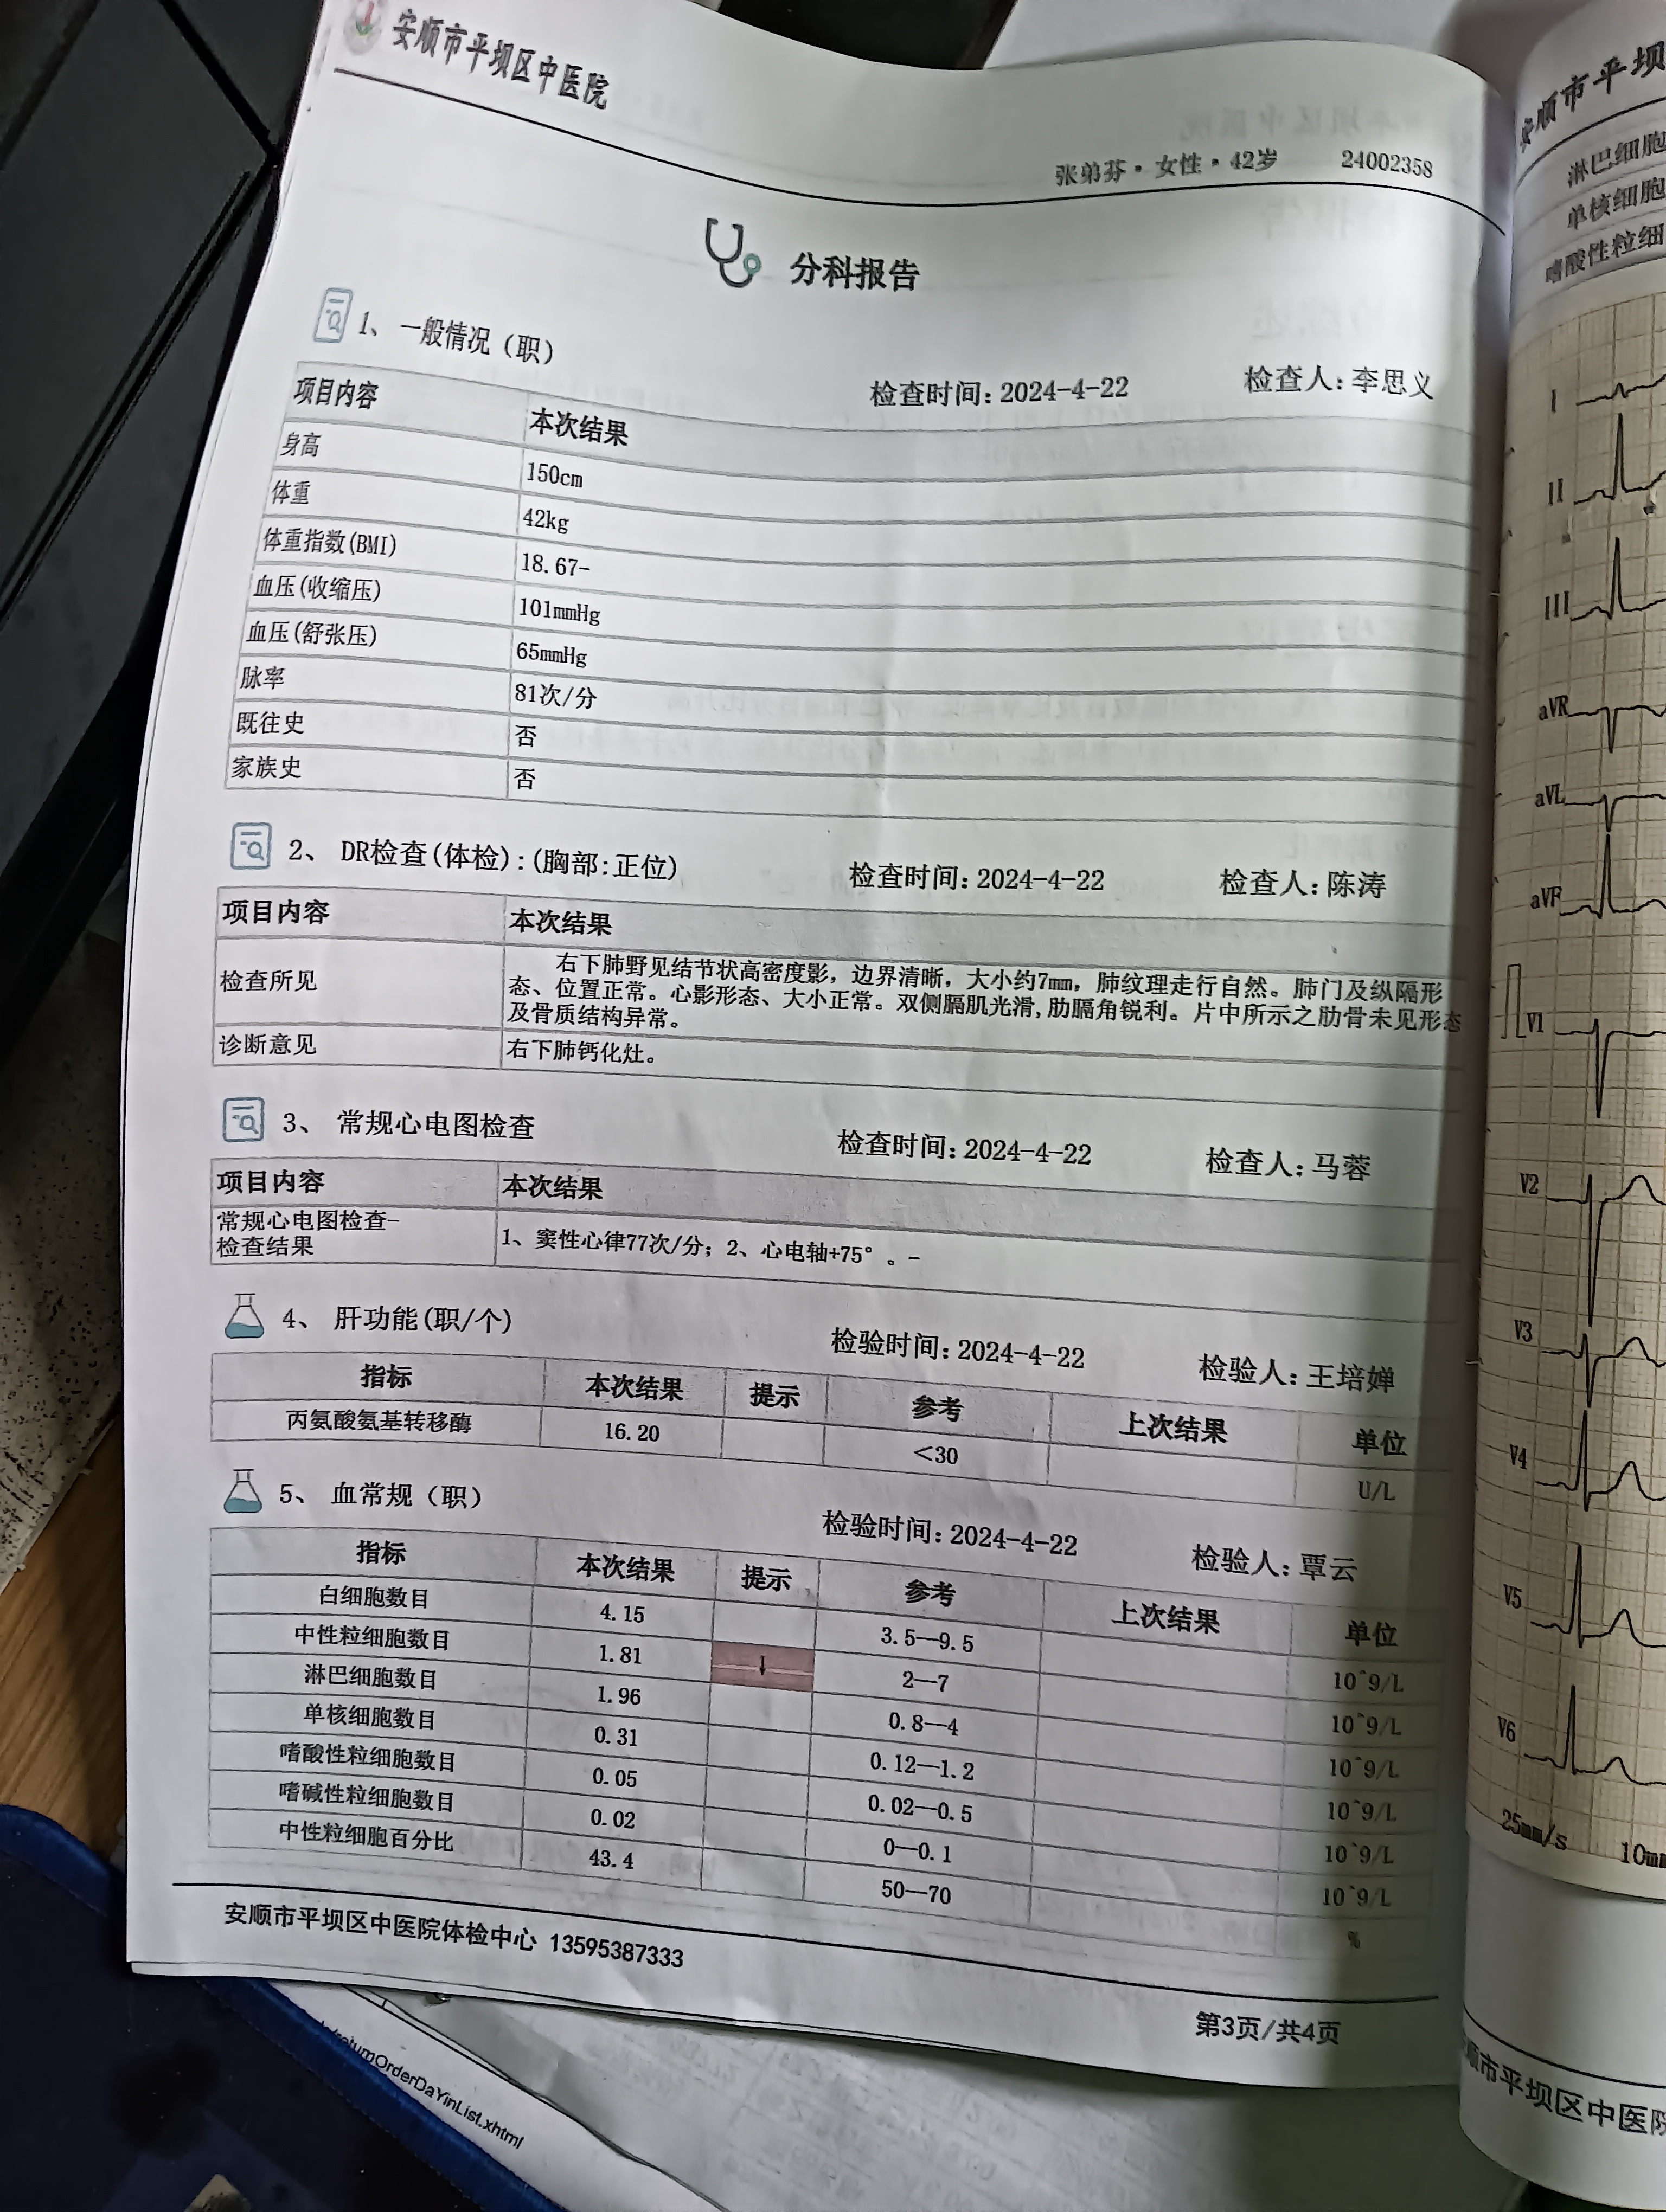 安顺市平坝区中医院
张弟芬·女性·42岁 24002358
分科报告
1、一般情况（职） 检查时间:2024-4-22 检查人:李思义
项目内容 本次结果
身高 150cm
体重 42kg
体重指数(BMI) 18.67-
血压(收缩压) 101mmHg
血压(舒张压) 65mmHg
脉率 81次/分
既往史 否
家族史 否
2、 DR检查(体检):(胸部:正位) 检查时间:2024-4-22 检查人:陈涛
项目内容 本次结果
检查所见 右下肺野见结节状高密度影，边界清晰，大小约7mm，肺纹理走行自然。肺门及纵隔形
态、位置正常。心影形态、大小正常。双侧膈肌光滑,肋膈角锐利。片中所示之肋骨未见形态
及骨质结构异常。
诊断意见 右下肺钙化灶。
3、 常规心电图检查 检查时间:2024-4-22 检查人:马蓉
项目内容 本次结果
常规心电图检查-
检查结果 1、窦性心律77次/分；2、心电轴+75° 。-
4、 肝功能(职/个) 检验时间:2024-4-22 检验人:王培婵
指标 本次结果 提示 参考 上次结果 单位
丙氨酸氨基转移酶 16.20 <30 U/L
5、 血常规（职） 检验时间:2024-4-22 检验人:覃云
指标 本次结果 提示 参考 上次结果 单位
白细胞数目 4.15 3.5—9.5 10^9/L
中性粒细胞数目 1.81 ↓ 2—7 10^9/L
淋巴细胞数目 1.96 0.8—4 10^9/L
单核细胞数目 0.31 0.12—1.2 10^9/L
嗜酸性粒细胞数目 0.05 0.02—0.5 10^9/L
嗜碱性粒细胞数目 0.02 0—0.1 10^9/L
中性粒细胞百分比 43.4 50—70 %
安顺市平坝区中医院体检中心 13595387333
第3页/共4页
returnOrderDaYinList.xhtml
安顺市平坝
淋巴细胞
单核细胞
嗜酸性粒细
I
II
III
aVR
aVL
aVF
V1
V2
V3
V4
V5
V6
25mm/s 10mm
顺市平坝区中医院